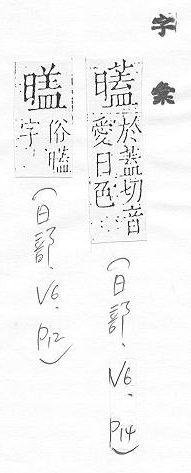 字彙
於蓋切音
愛日色
(日部. V6. P14)
俗
字
(日部. V6. P12)